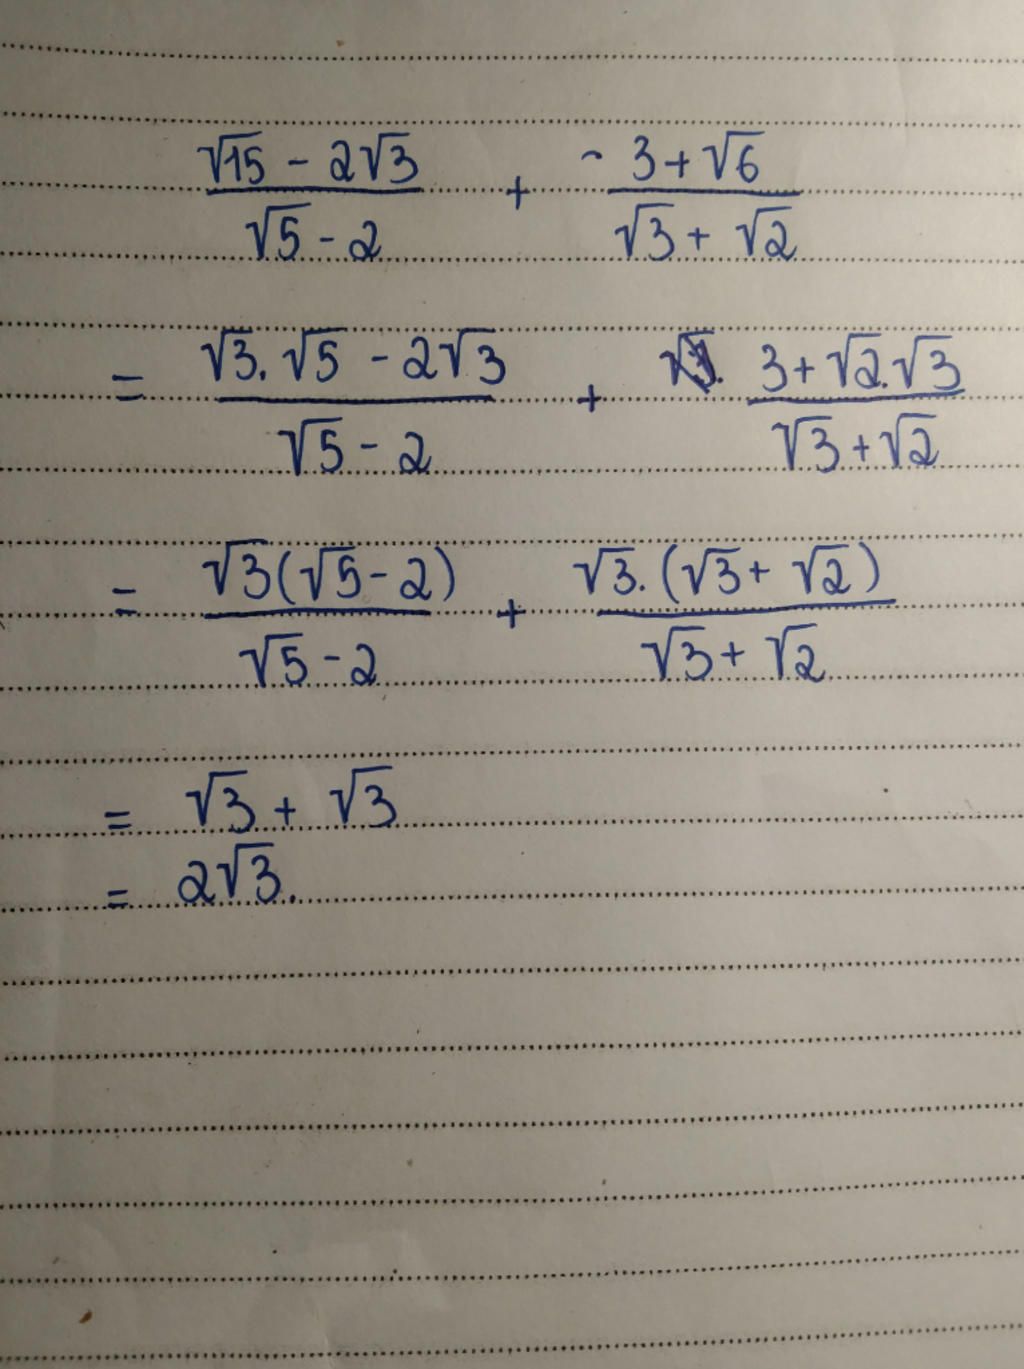 (√15 - 2√3)/(√5 - 2) + (3 + √6)/(√3 + √2)
= (√3.√5 - 2√3)/(√5 - 2) + (3 + √2.√3)/(√3 + √2)
= (√3(√5 - 2))/(√5 - 2) + (√3.(√3 + √2))/(√3 + √2)
= √3 + √3
= 2√3.